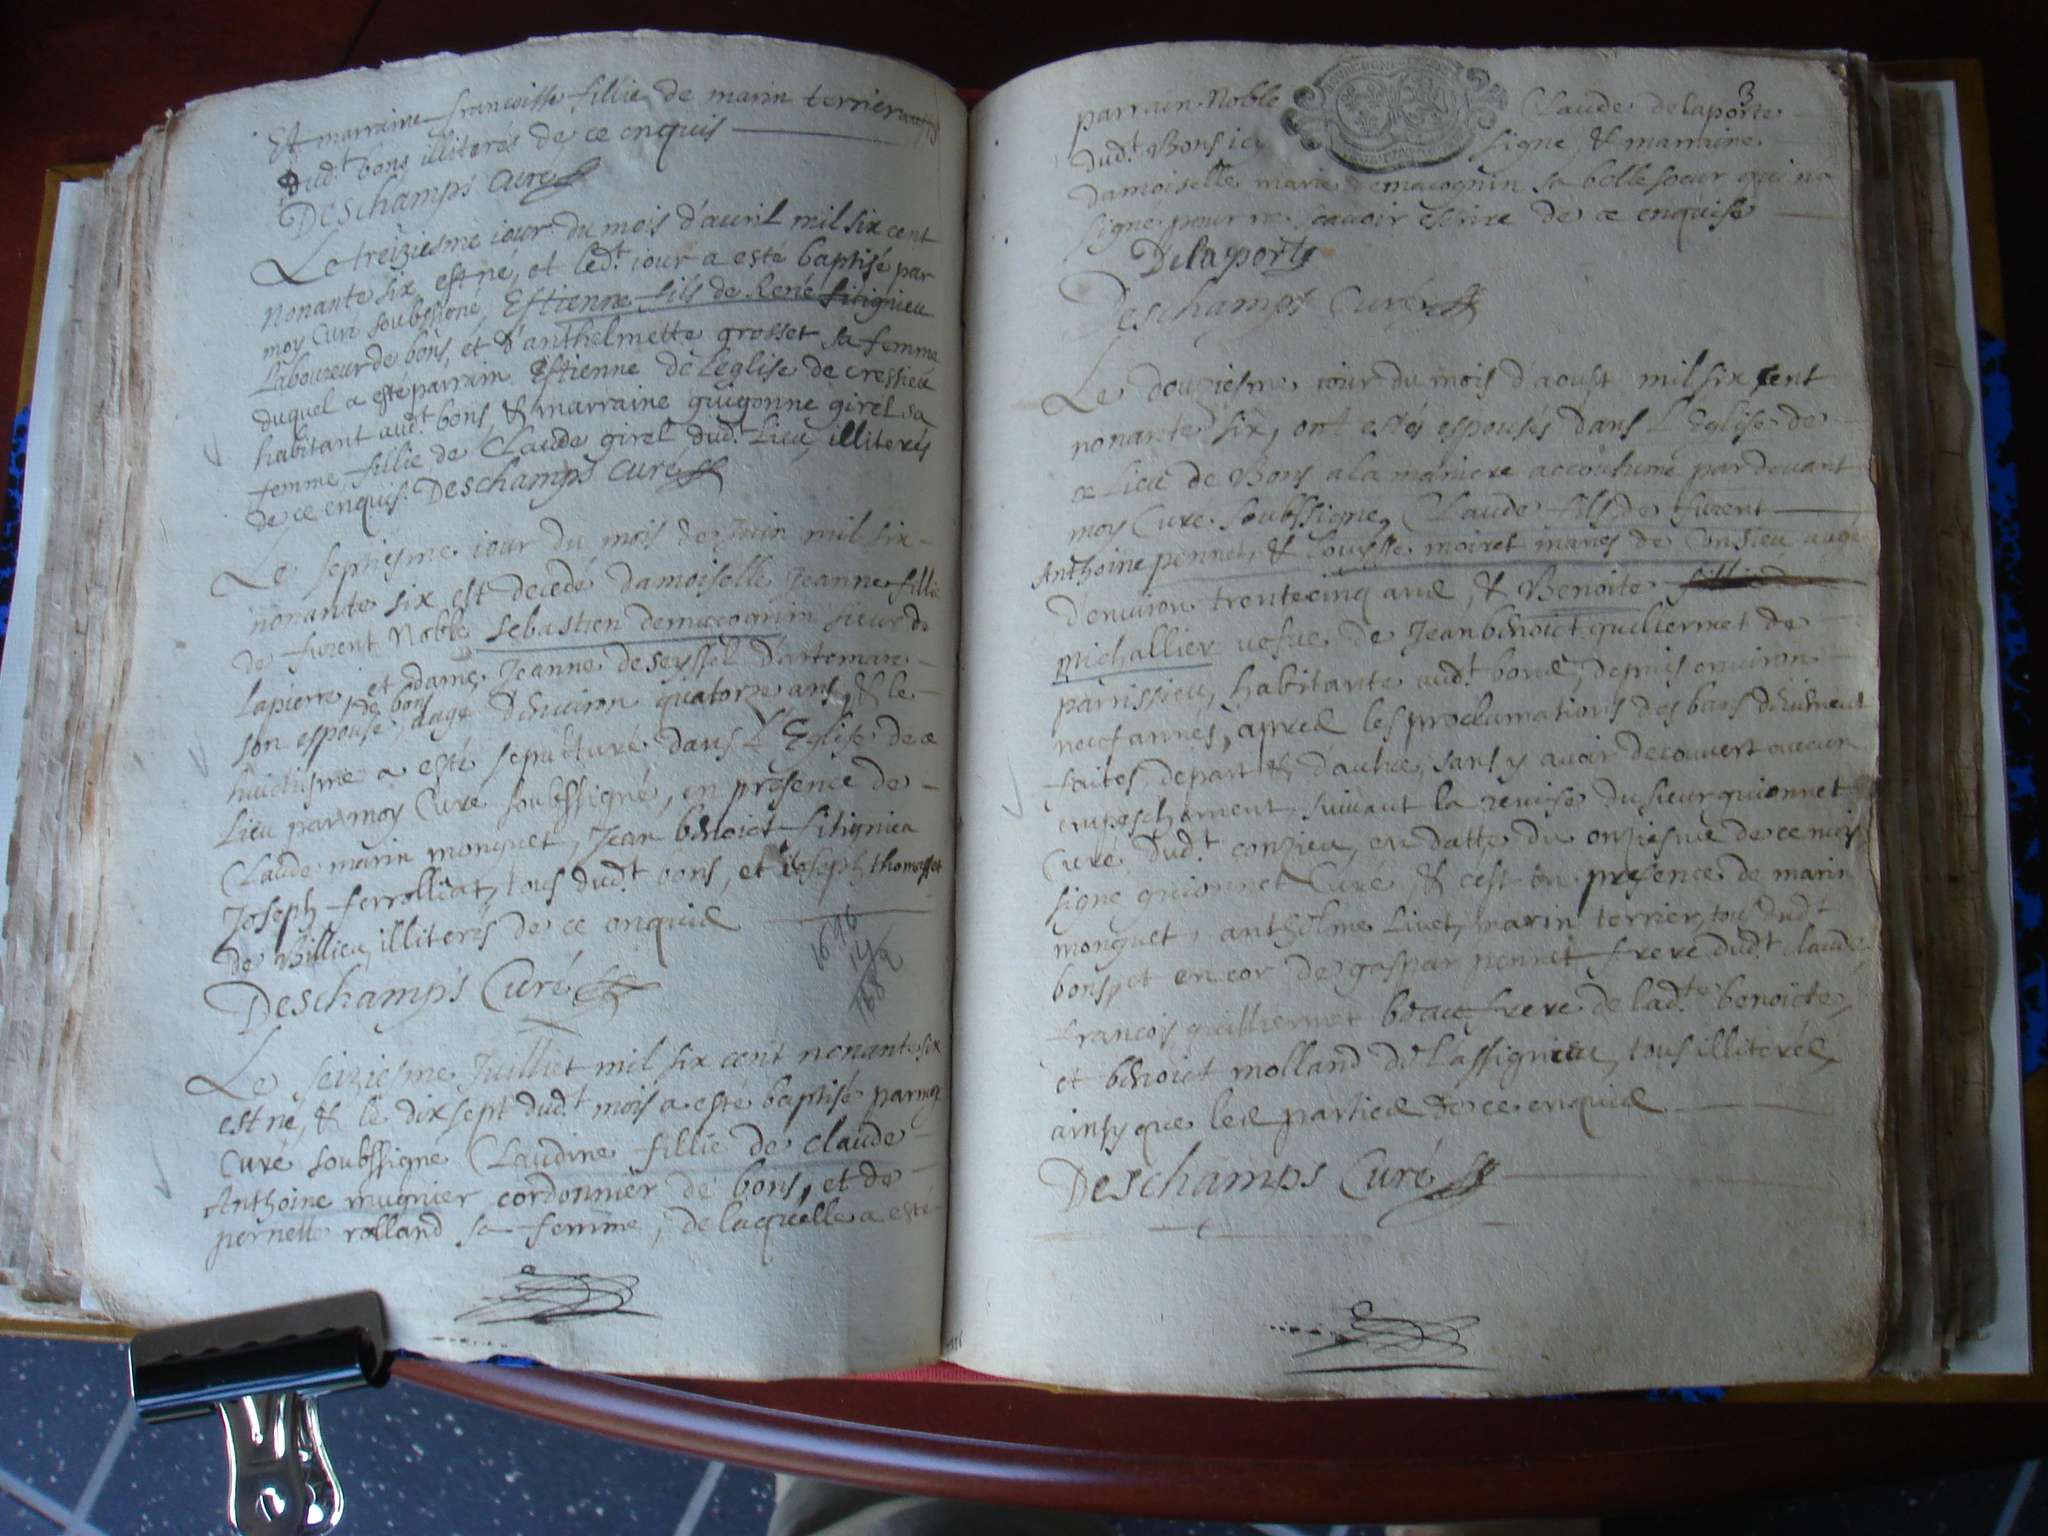 Et marraine francoisse fillie de marin terrier
dud.t bons illiterés de ce enquis
Deschamps Curé
Le treiziesme iour du mois d'auril mil six cent
nonante six est né, et led.t iour a esté baptisé par
moy Curé soubsigné, Estienne fils de René fitignieu
Laboureur de bons, et d'anthelmette grosset sa femme
duquel a esté parrain Estienne de Leglise de cressieu
habitant aud.t bons, & marraine guigonne girel sa
femme, fillie de Claude girel dud.t Lieu, illiterés
de ce enquis. Deschamps curé
Le septiesme iour du mois de Juin mil six
nonante six est decedé damoiselle Jeanne fillie
de furent Noble Sebastien demacognin sieur de
Lapierre, et dame Jeanne de Seyssel d'artemare
de bons
son espouse, aage d'enuiron quatorze ans, & le
huictiesme a esté sepulturé dans L'Eglise de ce
Lieu par moy Curé soubssigné, en presence de
Claude marin monguet, Jean benoict fitignieu
Joseph ferrolliat, tous dud.t bons, et ioseph thomasset
de Billieu, illiterés de ce enquis
Deschamps Curé
1696
Le seiziesme Juilliet mil six cent nonante six
est né, & le dixsept dud.t mois a esté baptisé par moy
Curé soubssigné Claudine fillie de Claude
Anthoine mugnier cordonnier de bons, et de
pernette rolland sa femme, de laquelle a esté
3
parrain Noble Claude delaporte
dud.t Bons icy signé, & marraine
damoiselle marie demacognin sa belle soeur qui na
signé pour ne scauoir escrire de ce enquise
Delaporte
Deschamps Curé
Le douziesme iour du mois d'aoust mil six cent
nonante six, ont estés espousés dans L'Eglise de
ce Lieu de Bons a la maniere accoutumé pardeuant
moy Curé soubssigné, Claude fils de furent
Anthoine pennet, & Louysse moiret mariés de Conzieu aagé
d'enuiron trentecinq ans, & Benoite fillie de
Michallier vefue de Jean benoict guilliermet de
parrissieu, habitante aud.t bons, depuis enuiron
neuf annés, apres les proclamations des bans deüement
faites, de part & d'autre, sans y auoir decouuert aucun
empeschement, suiuant la remise du sieur guionnet
Curé dud.t conzieu, en datte du onziesme de ce mois
signé guionnet Curé, & c'est en presence de marin
monguet, anthelme Liuet, marin terrier, tous dud.t
bons, et encor de gaspar pennet frere dud.t claude,
francois guilliermet beaufrere de lad.te benoicte,
et benoict molland de L'assignieu, tous illiterés,
ainsy que les parties de ce enquis
Deschamps Curé